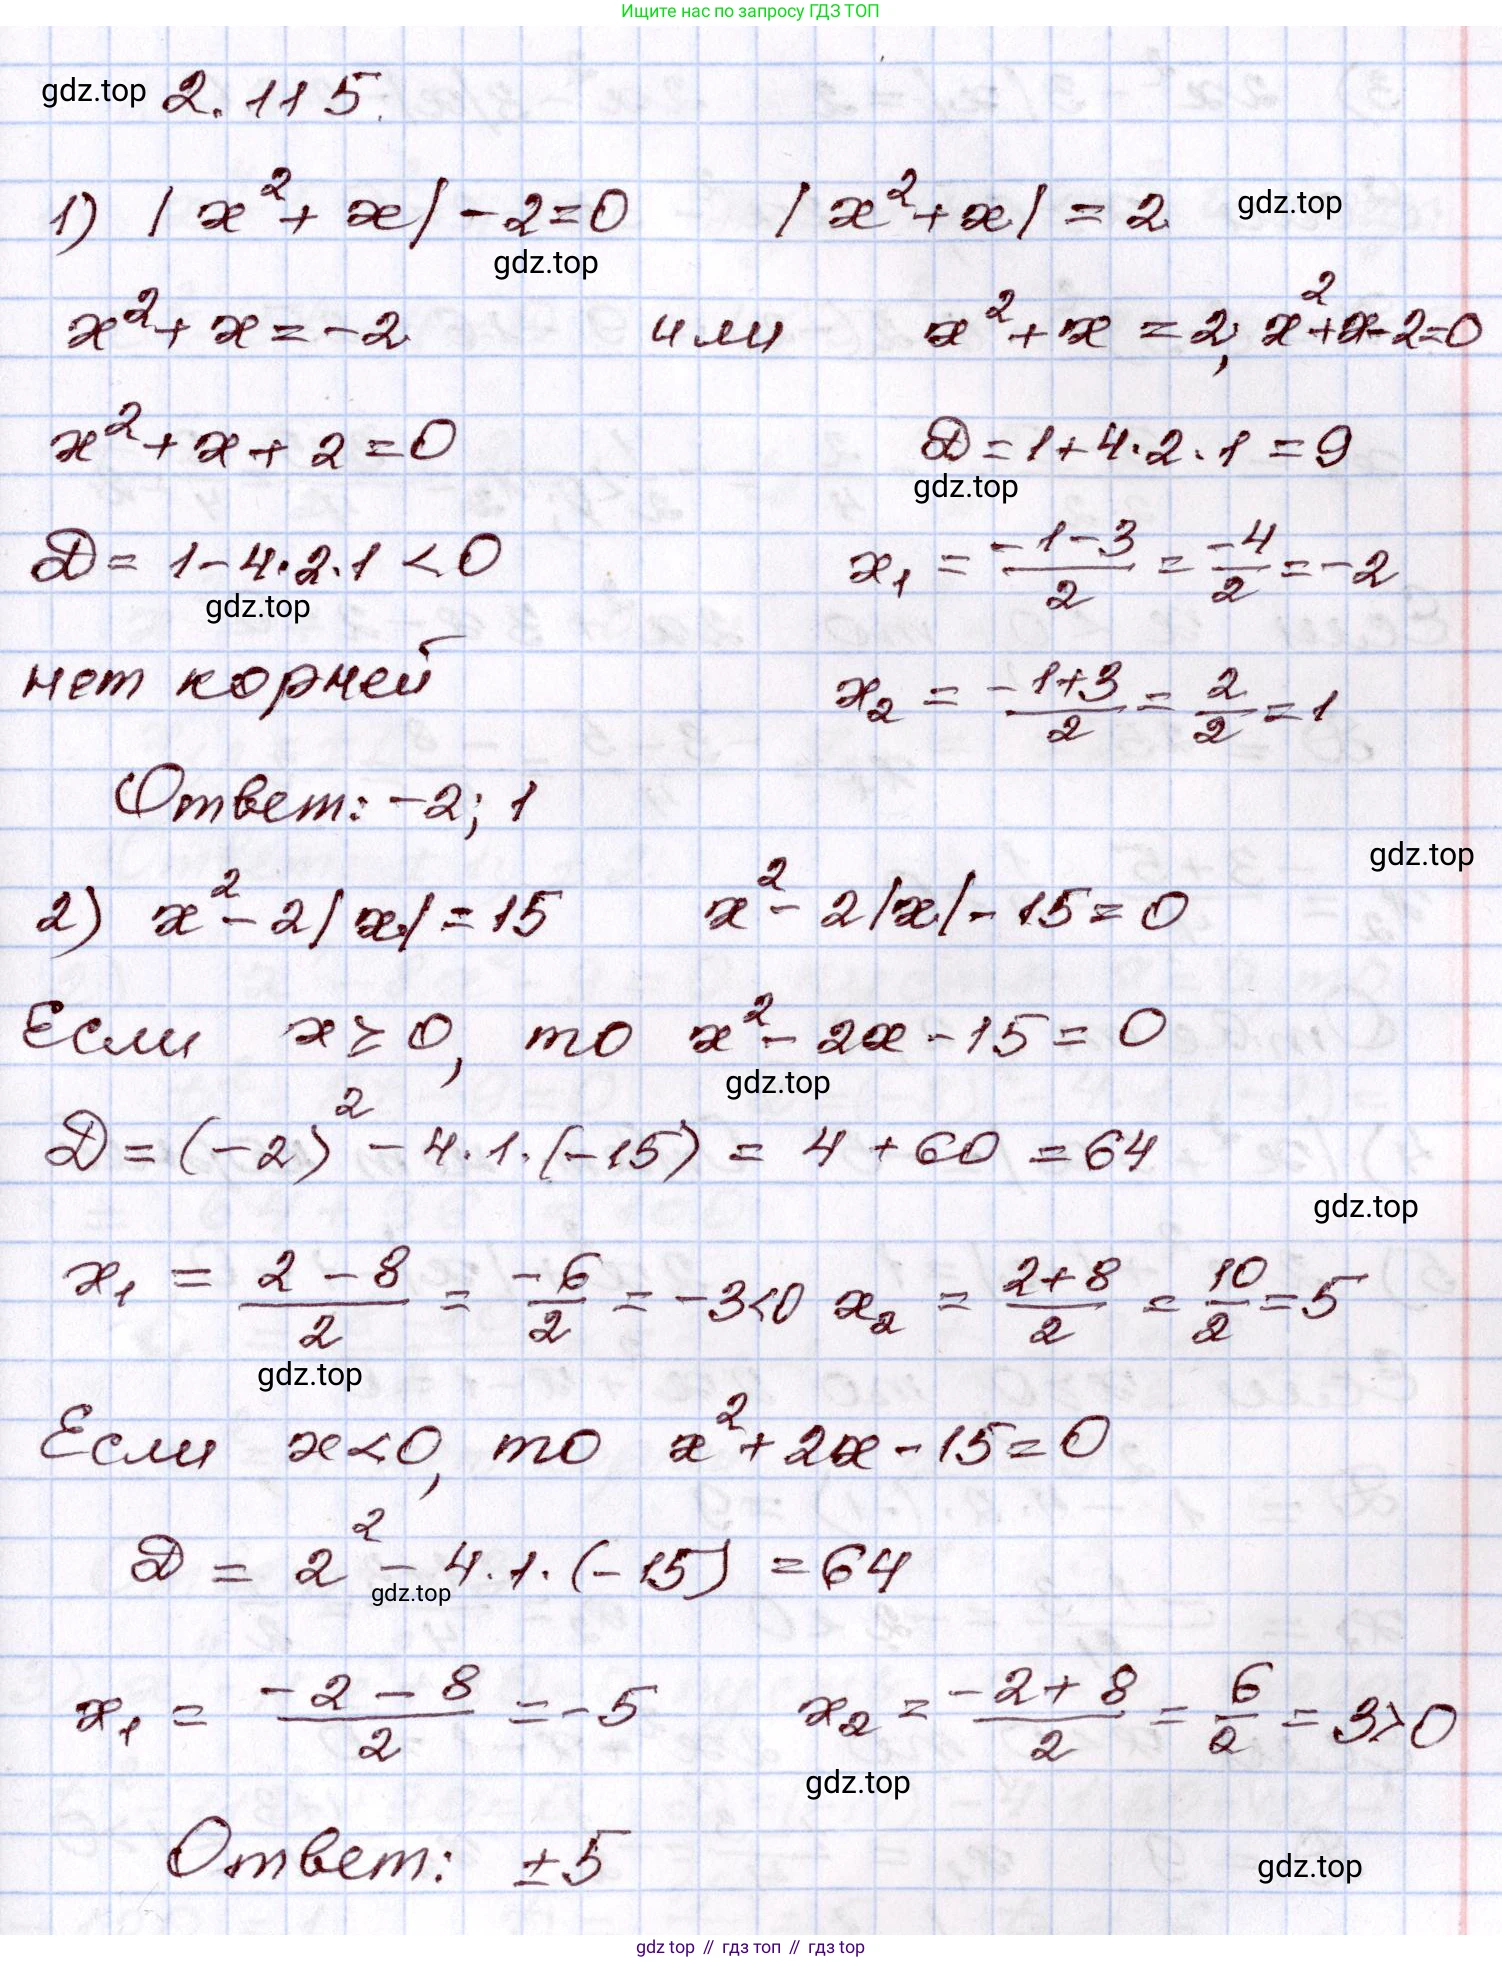 Ищите нас по запросу ГДЗ ТОП
gdz.top 2.115.
1) |x²+x|-2=0 |x²+x|=2 gdz.top
gdz.top
x²+x=-2 или x²+x=2; x²+x-2=0
x²+x+2=0 D=1+4·2·1=9
gdz.top
D=1-4·2·1<0 x₁=(-1-3)/2=-4/2=-2
gdz.top
нет корней x₂=(-1+3)/2=2/2=1
Ответ: -2; 1
gdz.top
2) x²-2|x|=15 x²-2|x|-15=0
Если x≥0, то x²-2x-15=0
gdz.top
D=(-2)²-4·1·(-15)=4+60=64
gdz.top
x₁=(2-8)/2=-6/2=-3<0 x₂=(2+8)/2=10/2=5
gdz.top
Если x<0, то x²+2x-15=0
D=2²-4·1·(-15)=64
gdz.top
x₁=(-2-8)/2=-5 x₂=(-2+8)/2=6/2=3>0
gdz.top
Ответ: ±5 gdz.top
gdz top // гдз топ // гдз top